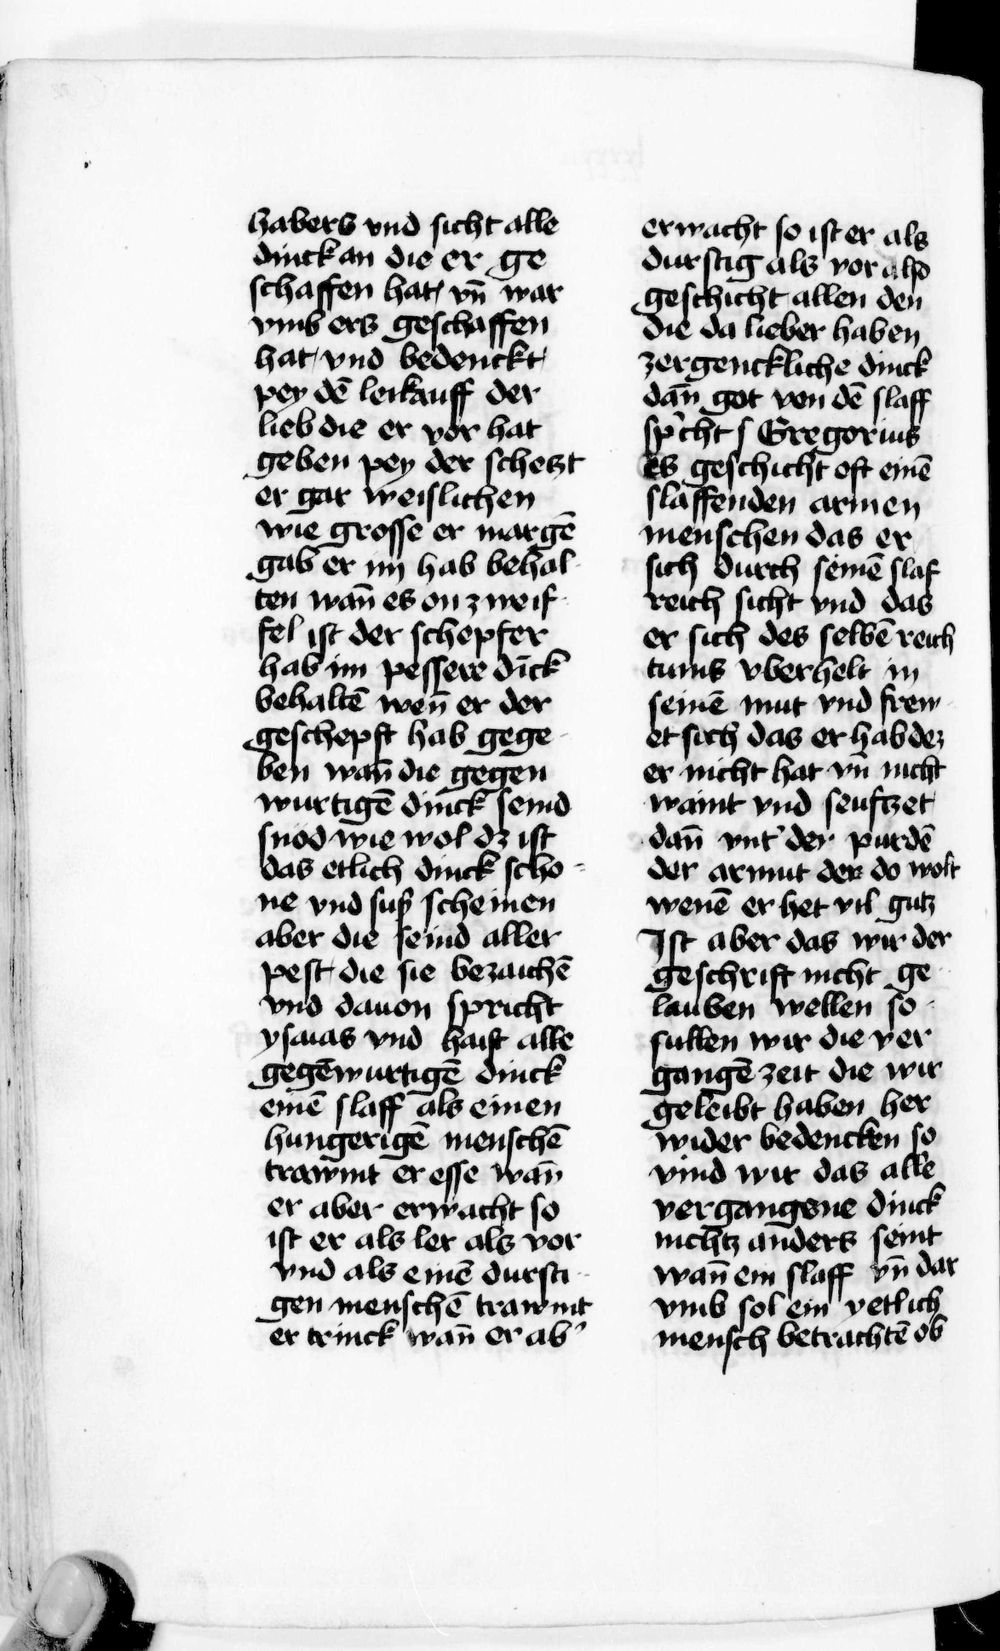 habers vnd sicht alle
dinck an die er ge
schaffen hat vn̄ war
vmb ers geschaffen
hat vnd bedenckt
pey dē leikauff der
lieb die er vor hat
geben pey der schetzt
er gar weislichen
wie grosse er margē
gab er im hab behal
ten wan̄ es on zweif
fel ist der schepfer
hab im pessere dīck
behaltē wen̄ er der
geschepft hab gege
ben wan̄ die gegen
wurtigē dinck seind
snod wie wol dz ist
das etlich dinck scho
ne vnd suß scheinen
aber die seind aller
pest die sie bezaichē
vnd dauon spricht
ysaias vnd haist alle
gegēwurtigē dinck
einē slaff als einen
hungerigē menschē
trawmt er esse wan̄
er aber erwacht so
ist er als ler als vor
vnd als einē dursti
gen menschē trawmt
er trinck wan̄ er ab'
erwacht so ist er als
durstig als vor also
geschicht allen den
die da lieber haben
zergenckliche dinck
dan̄ got von dē slaff
sp'cht s Gregorius
es geschicht oft einē
slaffenden armen
menschen das er
sich durch seinē slaf
reich sicht vnd das
er sich des selbē reich
tums vberhelt in
seinē mut vnd frew
et sich das er hab dez
er nicht hat vn̄ nicht
waint vnd seuftzet
dan̄ vnt' der purdē
der armut der do wolt
wenē er het vil gutz
Ist aber das wir der
geschrift nicht ge
lauben wellen so
sullen wir die ver
gangē zeit die wir
geleibt haben her
wider bedencken so
vind wir das alle
vergangene dinck
nichtz anders seint
wan̄ ein slaff vn̄ dar
vmb sol ein yetlich
mensch betrachtē ob